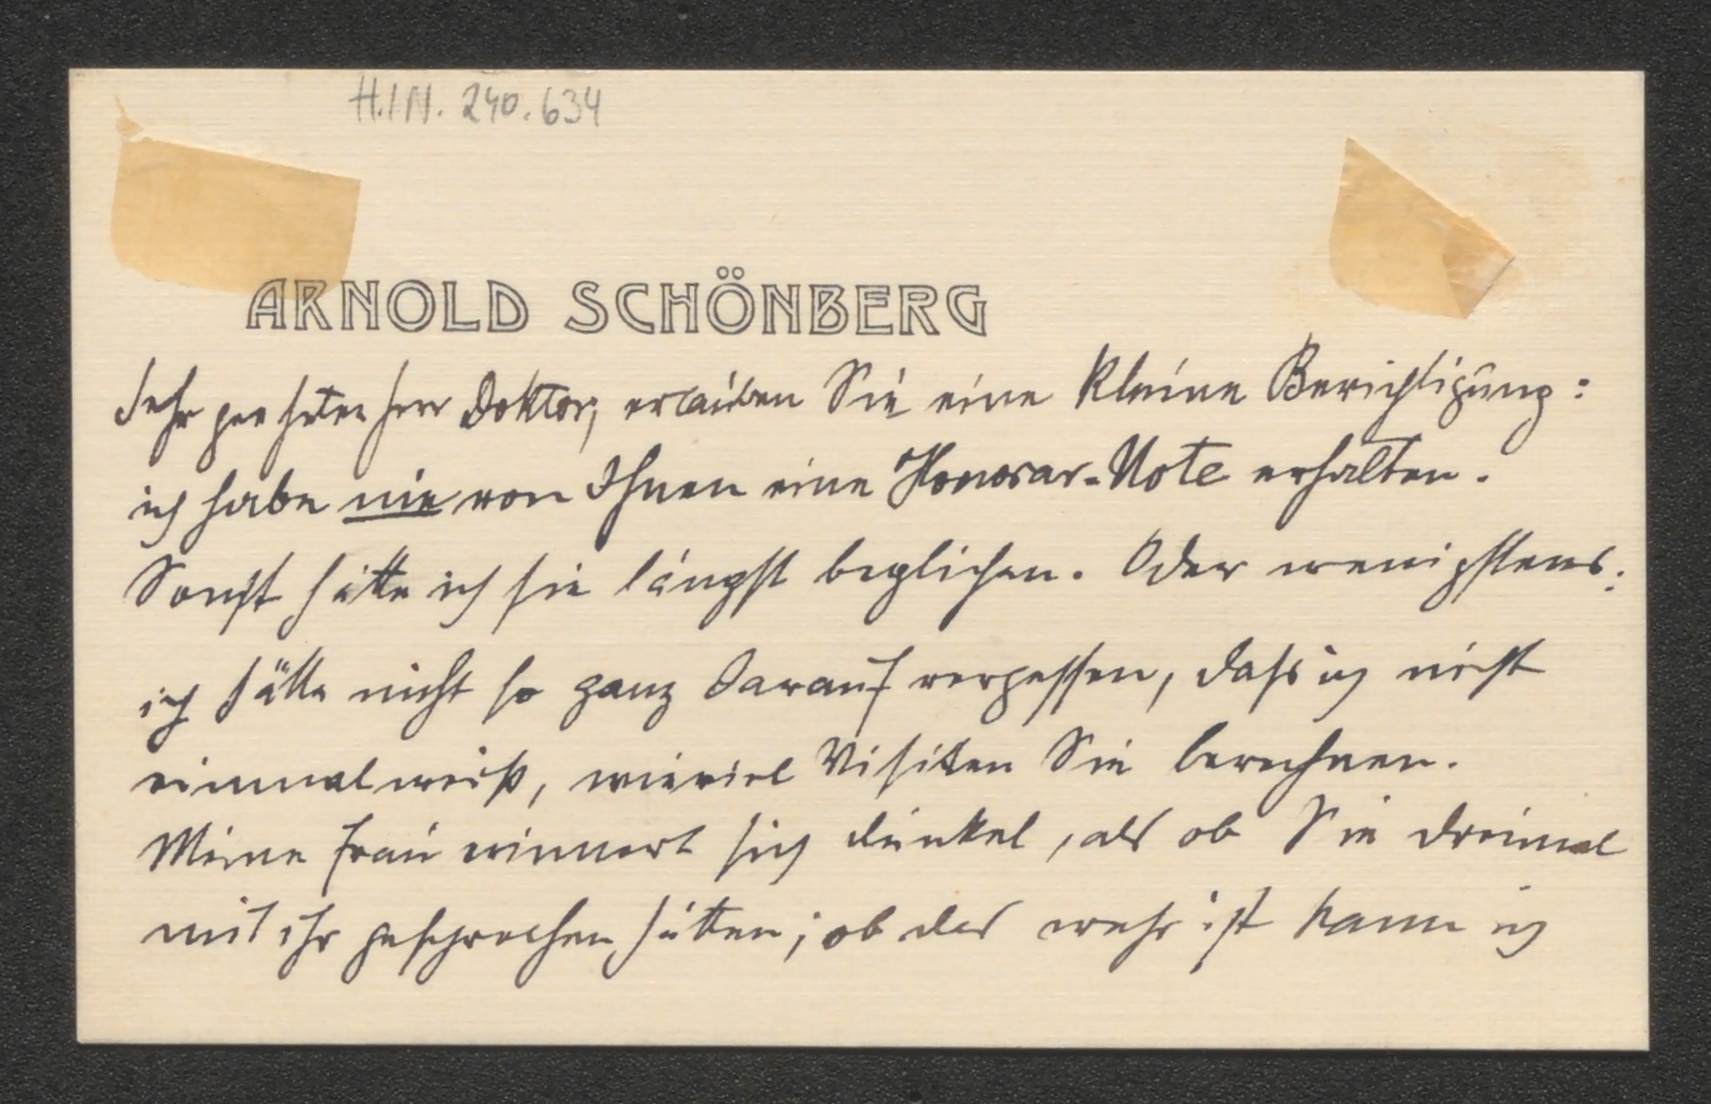 H.I.N. 240.634
ARNOLD SCHÖNBERG
Sehr geehrter Herr Doktor, erlauben Sie eine kleine Berichtigung:
ich habe nie von Ihnen eine Honorar-Note erhalten.
Sonst hätte ich sie längst beglichen. Oder wenigstens:
ich hätte nicht so ganz darauf vergessen, dass ich nicht
einmal weiß, wieviel Visiten Sie berechnen.
Meine Frau erinnert sich dunkel, als ob Sie dreimal
mit ihr gesprochen hätten; ob das wahr ist kann ich